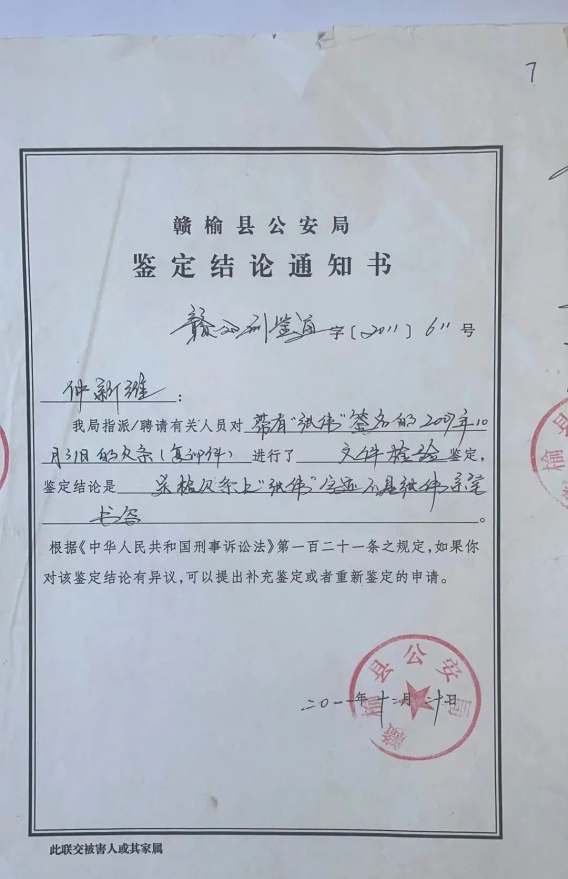 7
赣榆县公安局
鉴定结论通知书
赣公刑鉴通字〔2011〕611号
仲新维：
我局指派/聘请有关人员对带有“张伟”签名的2007年10
月31日的欠条(复印件)进行了文件检验鉴定，
鉴定结论是送检欠条上“张伟”字迹不是张伟亲笔
书写。
根据《中华人民共和国刑事诉讼法》第一百二十一条之规定，如果你
对该鉴定结论有异议，可以提出补充鉴定或者重新鉴定的申请。
赣榆县公安局
二〇一一年十二月二十日
此联交被害人或其家属